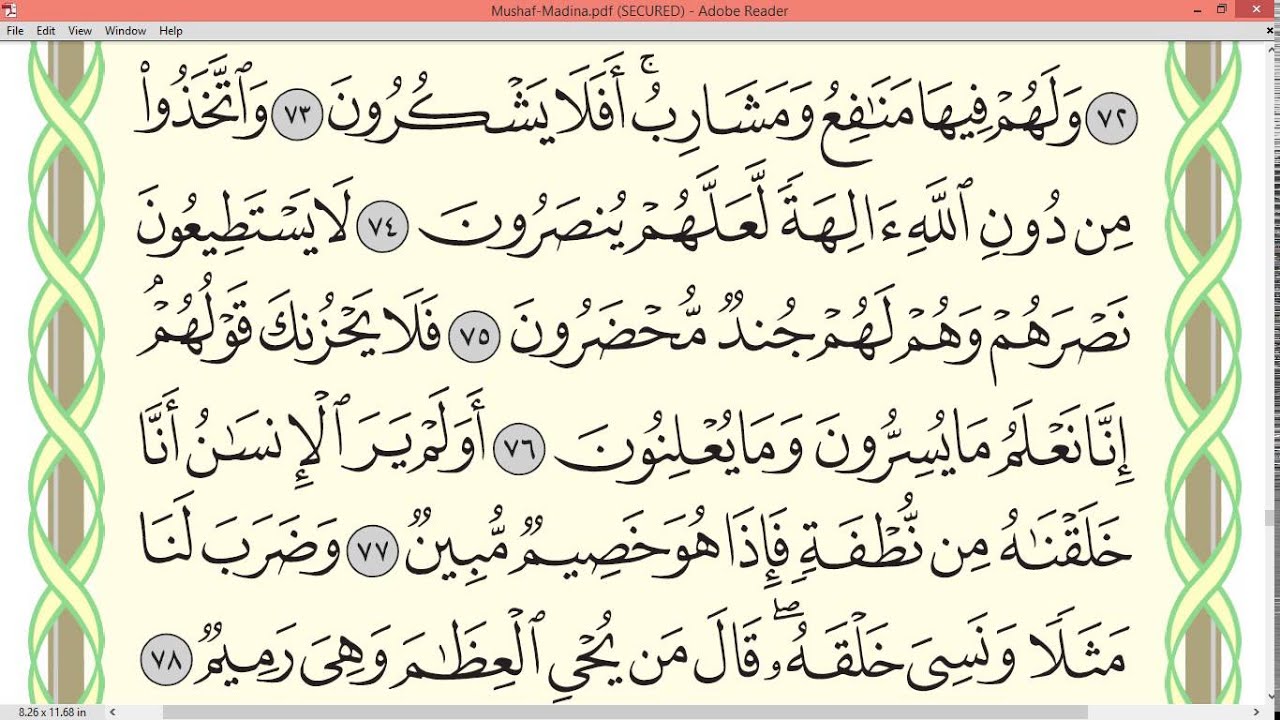 Mushaf-Madina.pdf (SECURED) - Adobe Reader
File Edit View Window Help
٧٢ وَلَهُمْ فِيهَا مَنَٰفِعُ وَمَشَارِبُ ۚ أَفَلَا يَشْكُرُونَ ٧٣ وَٱتَّخَذُوا۟
مِن دُونِ ٱللَّهِ ءَالِهَةً لَّعَلَّهُمْ يُنصَرُونَ ٧٤ لَا يَسْتَطِيعُونَ
نَصْرَهُمْ وَهُمْ لَهُمْ جُندٌ مُّحْضَرُونَ ٧٥ فَلَا يَحْزُنكَ قَوْلُهُمْ ۘ
إِنَّا نَعْلَمُ مَا يُسِرُّونَ وَمَا يُعْلِنُونَ ٧٦ أَوَلَمْ يَرَ ٱلْإِنسَٰنُ أَنَّا
خَلَقْنَٰهُ مِن نُّطْفَةٍ فَإِذَا هُوَ خَصِيمٌ مُّبِينٌ ٧٧ وَضَرَبَ لَنَا
مَثَلًا وَنَسِىَ خَلْقَهُۥ ۖ قَالَ مَن يُحْىِ ٱلْعِظَٰمَ وَهِىَ رَمِيمٌ ٧٨
8.26 x 11.68 in